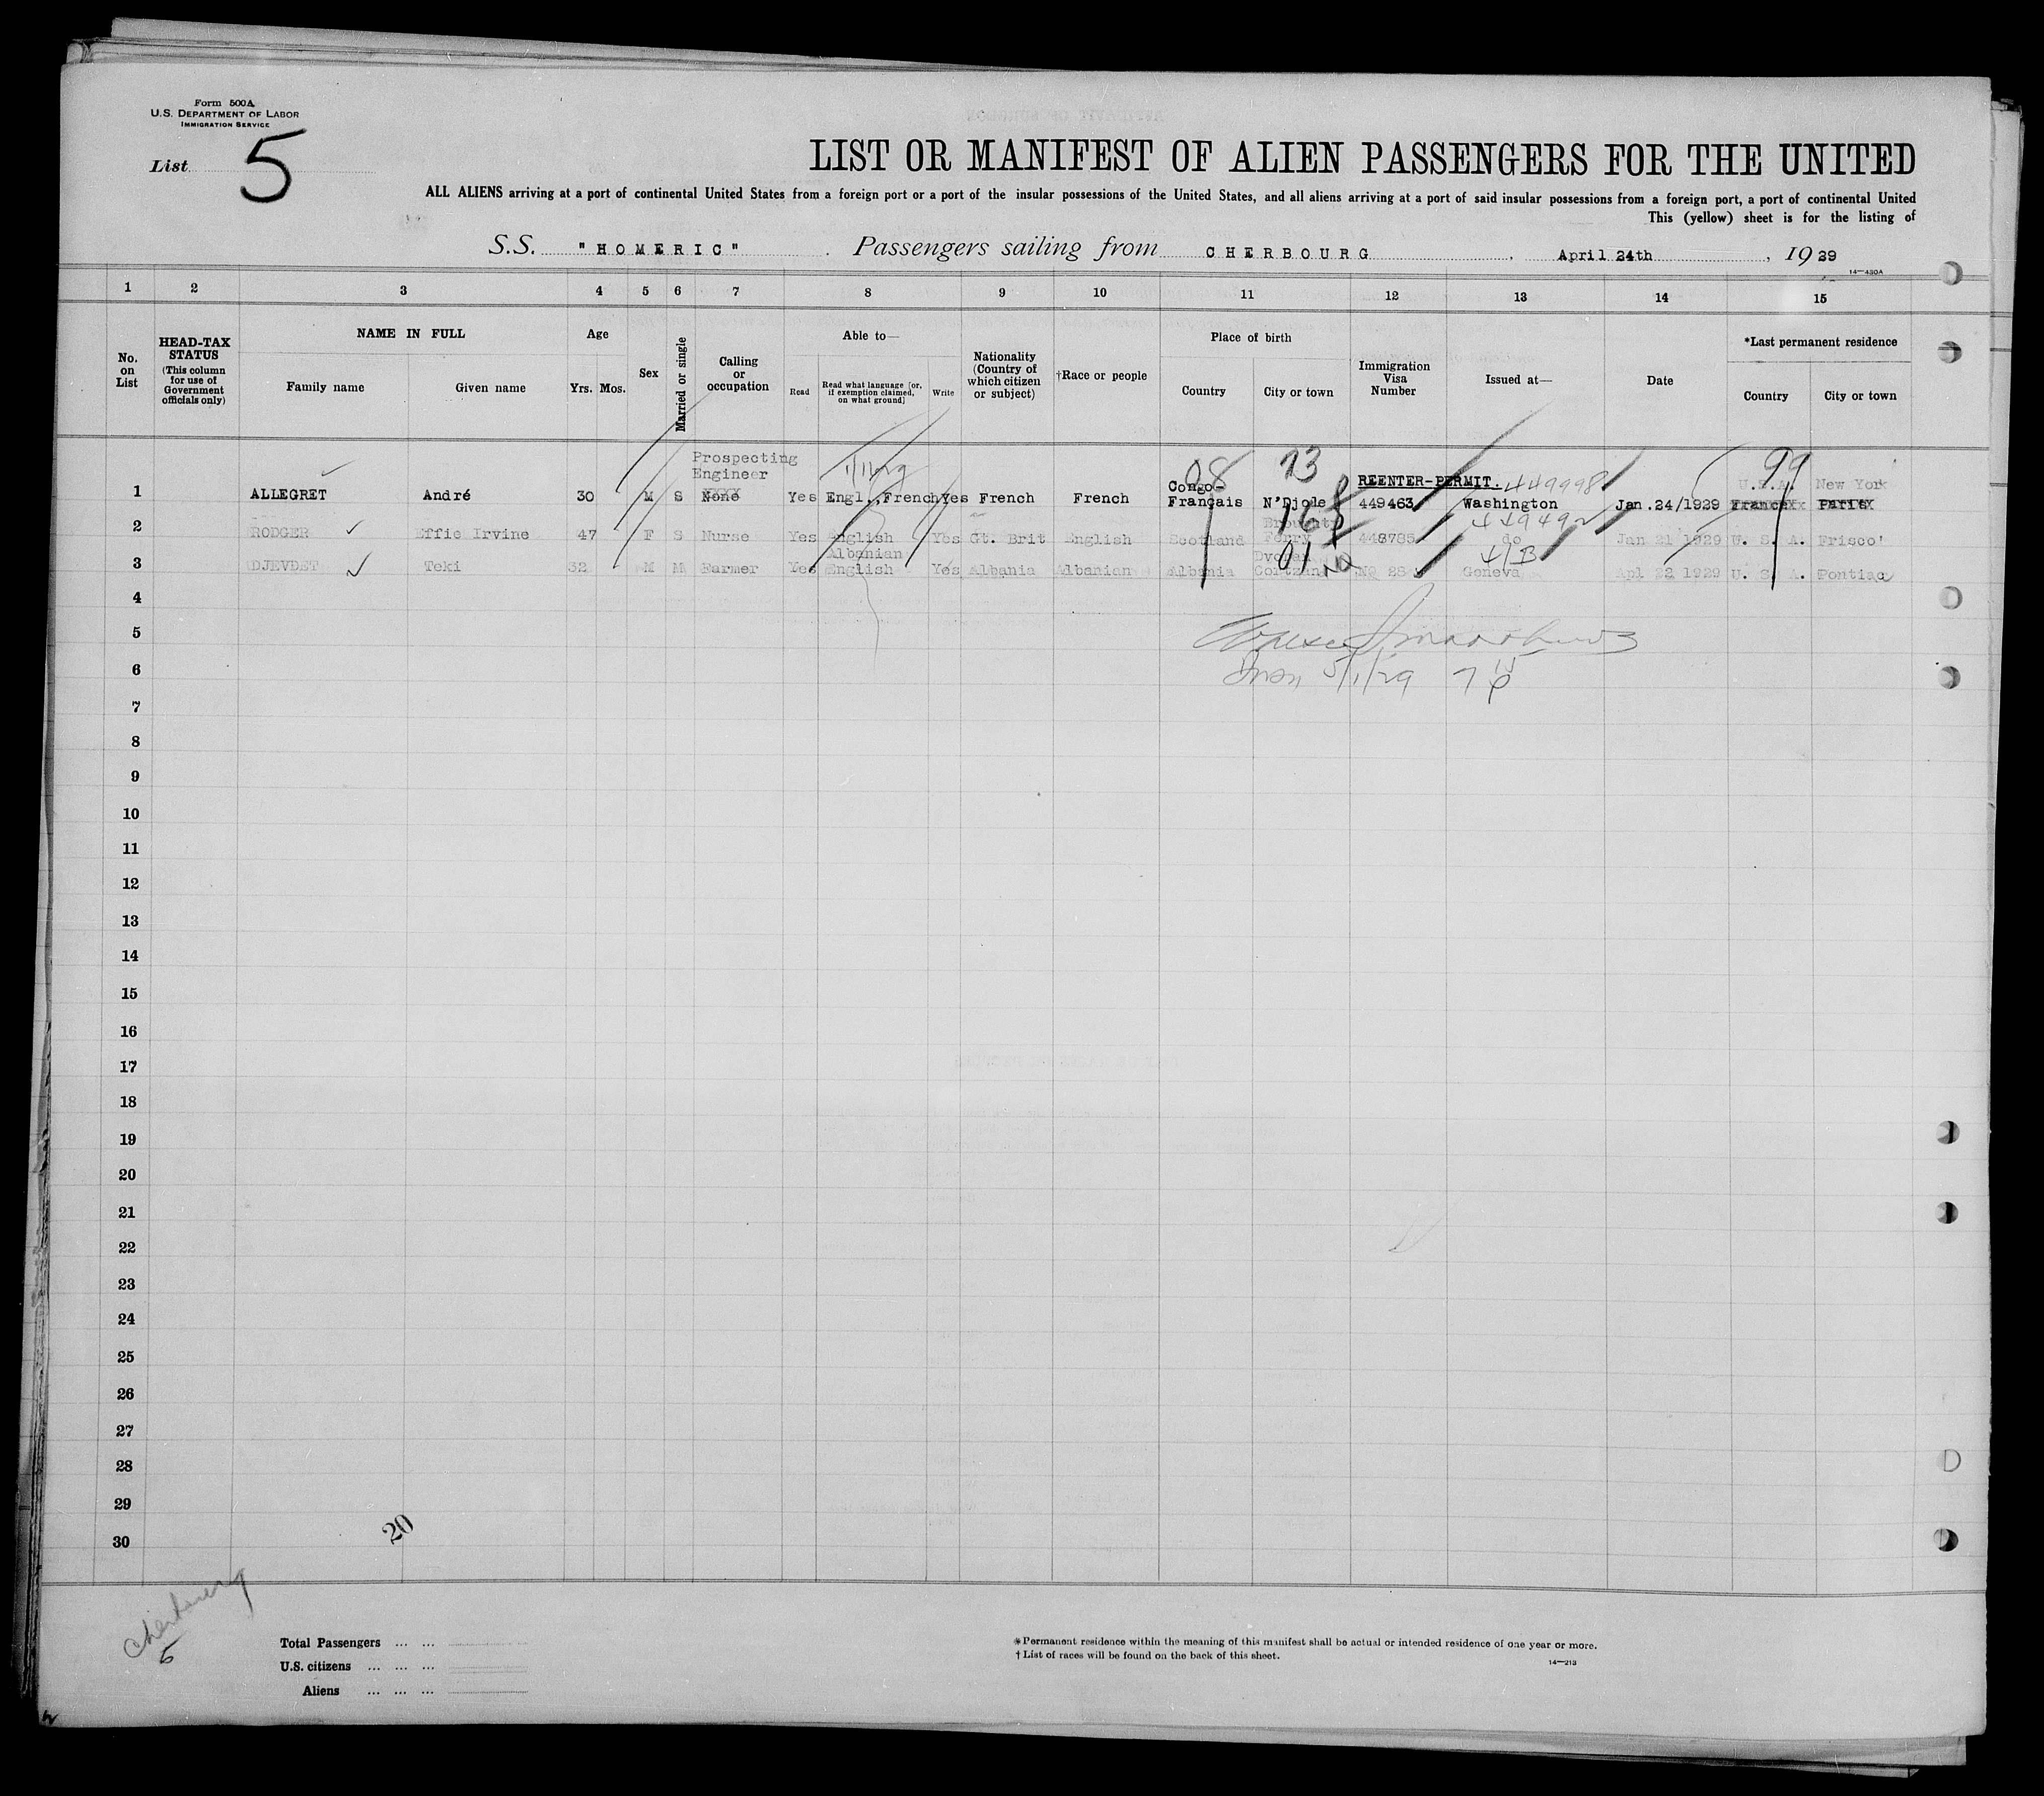 Form 500A
U.S. DEPARTMENT OF LABOR
IMMIGRATION SERVICE
List 5
LIST OR MANIFEST OF ALIEN PASSENGERS FOR THE UNITED
ALL ALIENS arriving at a port of continental United States from a foreign port or a port of the insular possessions of the United States, and all aliens arriving at a port of said insular possessions from a foreign port, a port of continental United
This (yellow) sheet is for the listing of
S.S. "HOMERIC" . Passengers sailing from CHERBOURG , April 24th , 1929
14—430A
1 2 3 4 5 6 7 8 9 10 11 12 13 14 15
No. on List
HEAD-TAX STATUS (This column for use of Government officials only)
NAME IN FULL
Family name Given name
Age
Yrs. Mos.
Sex
Married or single
Calling or occupation
Able to—
Read
Read what language [or, if exemption claimed, on what ground]
Write
Nationality (Country of which citizen or subject)
†Race or people
Place of birth
Country City or town
Immigration Visa Number
Issued at—
Date
*Last permanent residence
Country City or town
Prospecting 08 73 99
Engineer REENTER-PERMIT. 449998 U.S.A. New York
1 ALLEGRET André 30 M S None Yes Engl.,French Yes French French Congo-Français N'Djole 449463 Washington Jan.24/1929 France Paris
16 449492
2 RODGER Effie Irvine 47 F S Nurse Yes English Yes Gt. Brit English Scotland Ferry 448785 do Jan 21 1929 U. S. A. Frisco'
Albanian 01 4/B
3 DJEVDET Teki 32 M M Farmer Yes English Yes Albania Albanian Albania No 28 Geneva Apl 22 1929 U. S. A. Pontiac
4
5
6 5/1/29
7
8
9
10
11
12
13
14
15
16
17
18
19
20
21
22
23
24
25
26
27
28
29
30
20
Cherbourg
5
Total Passengers ... ...
U.S. citizens ... ... ...
Aliens ... ... ...
*Permanent residence within the meaning of this manifest shall be actual or intended residence of one year or more.
†List of races will be found on the back of this sheet.
14—213